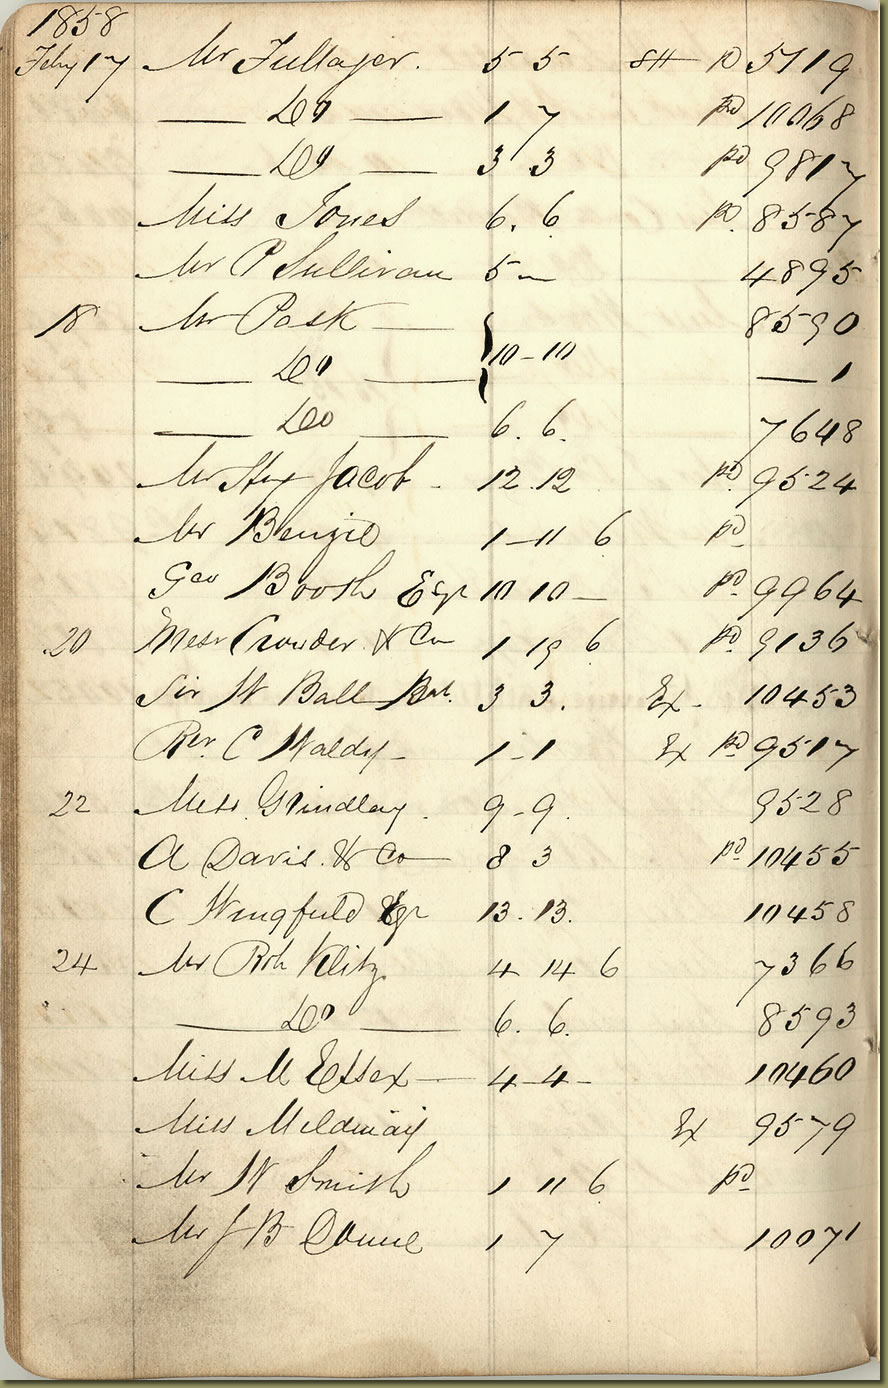 1858
Feby 17 Mr Fullager. 5 5 SH pd 5719
Do 1 7 pd 10068
Do 3 3 pd 9817
Miss Jones 6. 6 pd. 8587
Mr P Sullivan 5 – 4895
18 Mr Pask 8590
Do 10 – 10 — 1
Do 6. 6. 7648
Mr Hy Jacob 12.12 pd 9524
Mr Benzie 1 – 11 6 pd
Geo Boosh Esqr 10 10 – pd 9964
20 Messr Crowder & Co 1 19 6 pd 9136
Sir W Ball Bat. 3 3. Ex – 10453
Rev. C Waldy – 1 – 1 Ex pd 9517
22 Messr. Grindlay. 9 – 9. 9528
A Davis. & Co 8 3 pd 10455
C Wingfield Esqr 13. 13. 10458
24 Mr Rob Klitz 4 14 6 7366
Do 6. 6. 8593
Miss M Essex — 4 – 4 – 10460
Miss Mildmay Ex 9579
Mr W Smith 1 11 6 pd
Mr J B Doune 1 7 10071